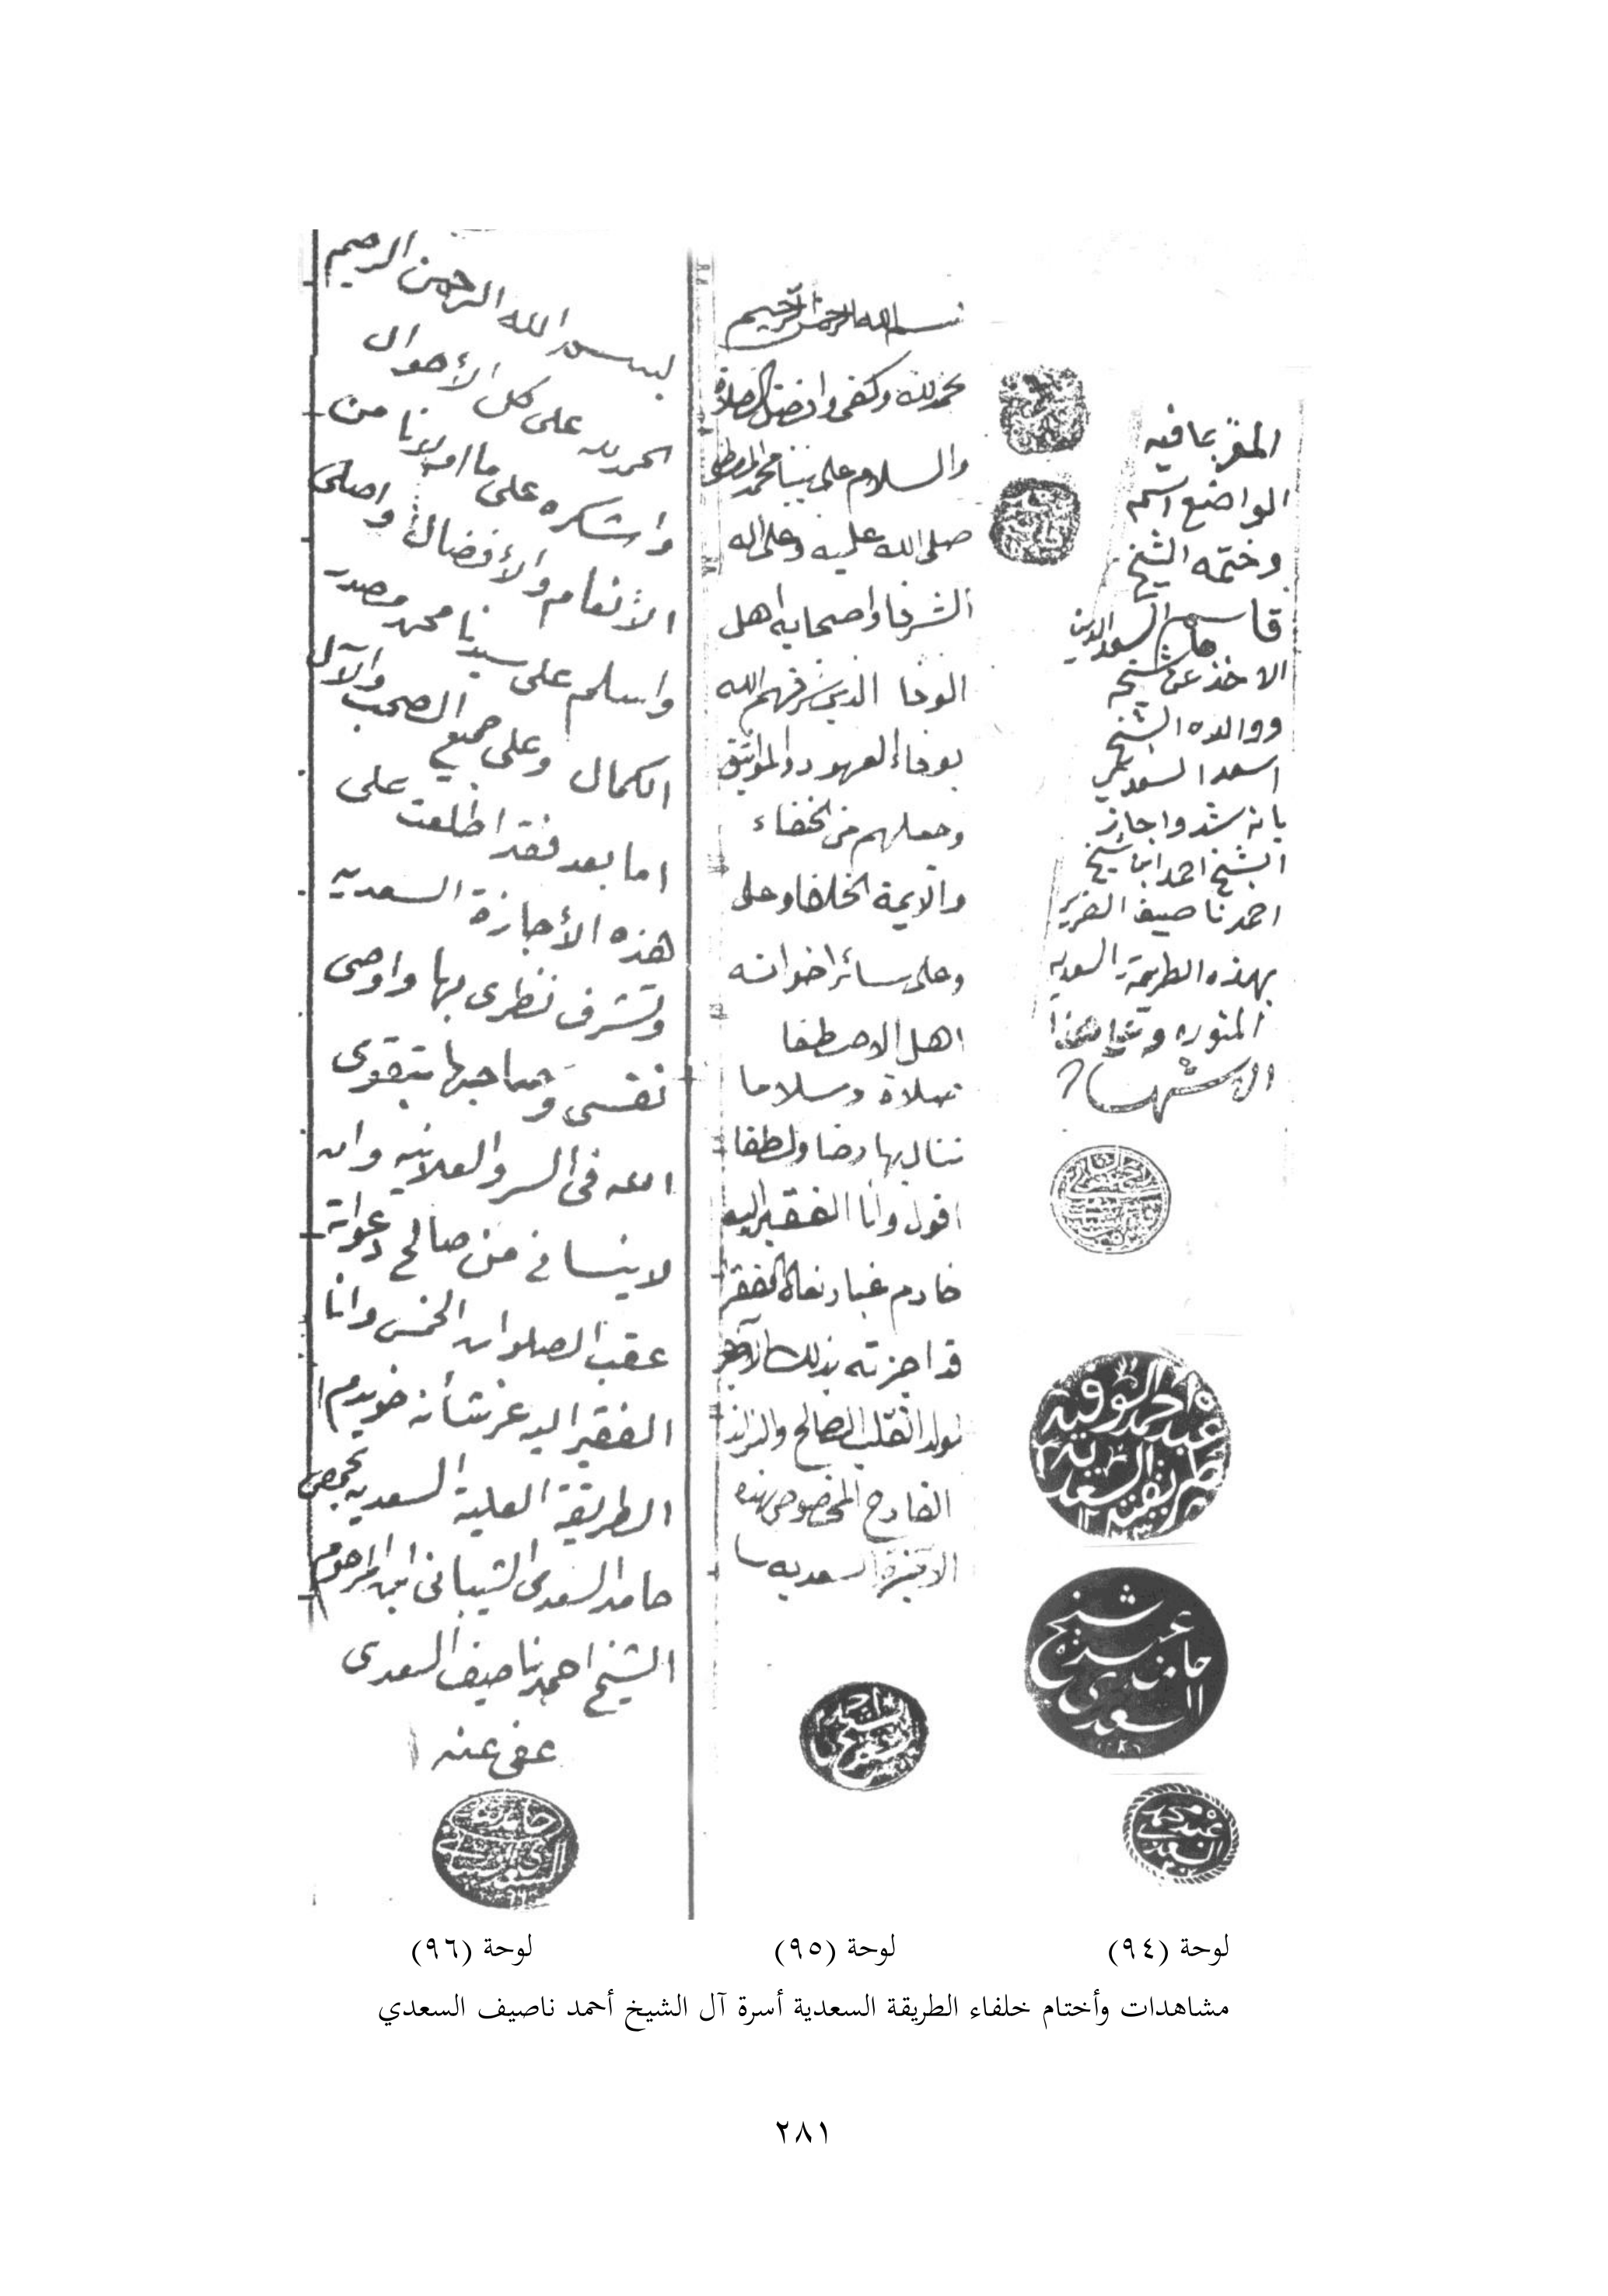 المقر بما فيه
الواضع اسمه
وختمه الشيخ
قاسم السعدي
الاخذ عن شيخه
ووالده الشيخ
اسعد السعدي
بانه شد واجاز
الشيخ احمد ابن الشيخ
احمد ناصيف الضرير
بهذه الطريقة السعديه
المنوره وعلى هذا
الاشهاد
عبده احمد الوفيد
طريقته السعدية
عبده شيخ
حامد
السعدي
عبده محمد
السعدي
بسم الله الرحمن الرحيم
نحمد لله وكفى وافضل الصلاة
والسلام على نبينا محمد المصطفى
صلى الله عليه وعلى اله
الشرفا واصحابه اهل
الوفا الذين شرفهم الله
بوفاء العهود والمواثيق
وجعلهم من الحنفاء
والايمة الخلفا وعلى
وعلى سائر اخوانه
اهل الاصطفا
صلاة وسلاما
ننال بها رضا ولطفا
اقول وأنا الفقير اليه
خادم غبار نعال الفقرا
قد اجزته بذلك
لولد القلب الصالح
الفادح المخصوص بهذه
السعديه
بسم الله الرحمن الرحيم
الحمد لله على كل الأحوال
واشكره على ما اولانا من
الأنعام والأفضال واصلى
واسلم على سيدنا محمد مصدر
الكمال وعلى جميع الصحب والآل
اما بعد فقد اطلعت على
هذه الأجازة السعديه
وتشرف نظرى بها واوصى
نفسى وصاحبها بتقوى
الله فى السر والعلانيه وان
لا ينسانى من صالح دعواته
عقب الصلوات الخمس وانا
الفقير اليه عز شأنه خويدم
الطريقة العلية السعديه بحمص
حامد السعدى الشيبانى ابن المرحوم
الشيخ احمد ناصيف السعدى
عفى عنه
لوحة (٩٤)
لوحة (٩٥)
لوحة (٩٦)
مشاهدات وأختام خلفاء الطريقة السعدية أسرة آل الشيخ أحمد ناصيف السعدي
٢٨١